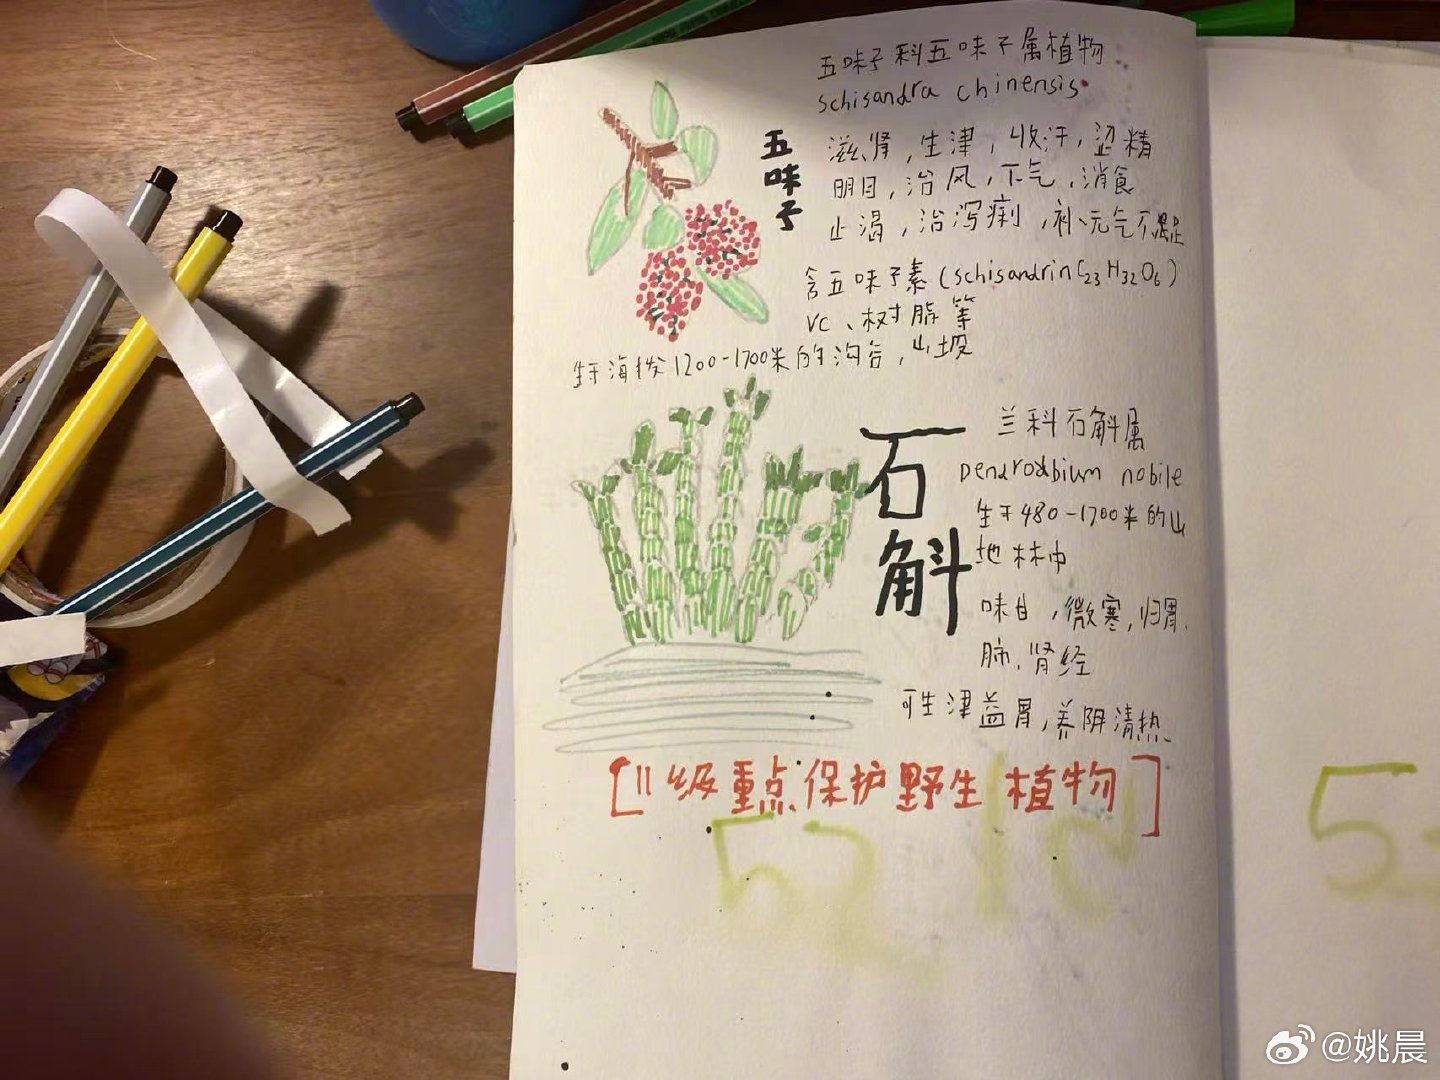 五味子科五味子属植物
schisandra chinensis
五味子
滋肾，生津，收汗，涩精
明目，治风，下气，消食
止渴，治泻痢，补元气不足
含五味子素(schisandrinC23H32O6)
VC、树脂等
生于海拔1200-1700米的沟谷，山坡
石斛
兰科石斛属
Dendrodbium nobile
生于480-1700米的山
地林中
味甘，微寒，归胃、
肺、肾经
可生津益胃，养阴清热、
[II级重点保护野生植物]
52
52
@姚晨